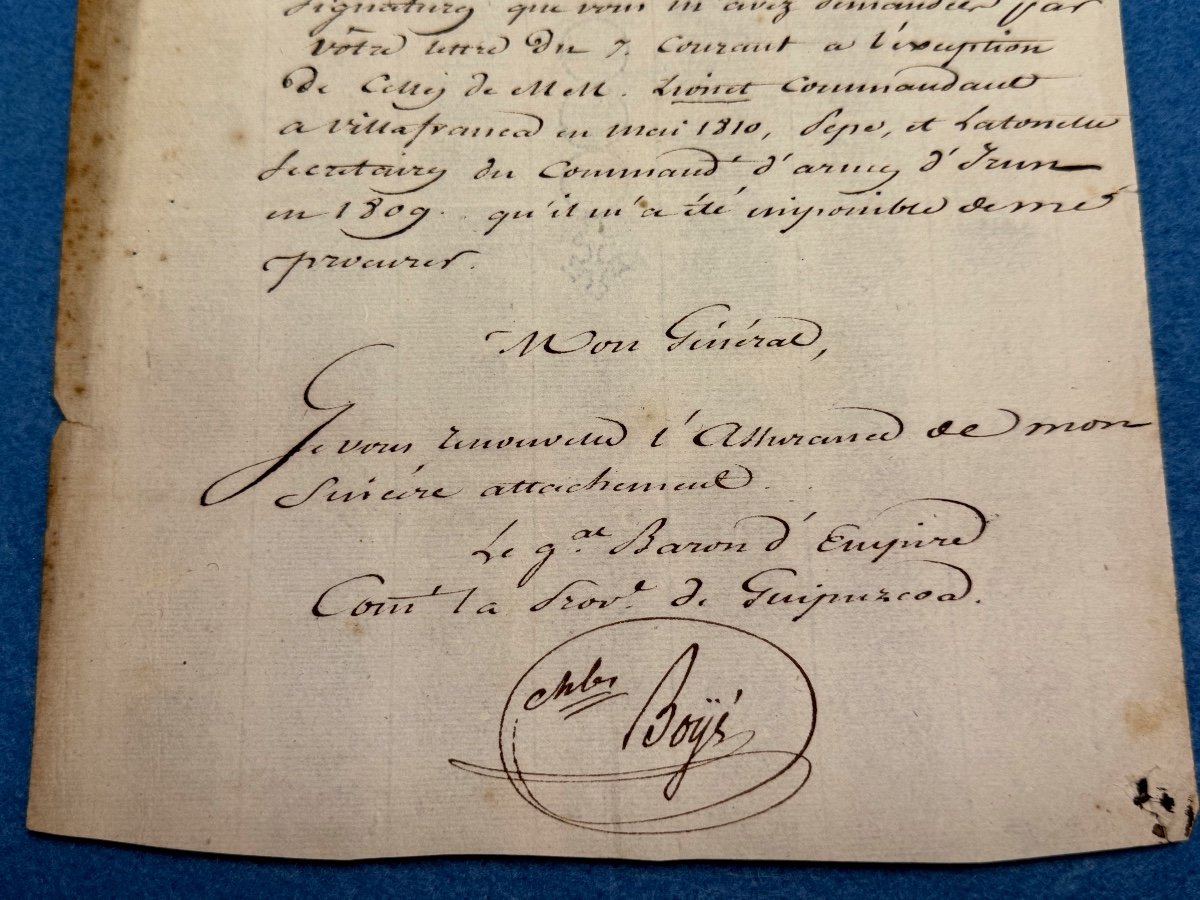 signatures que vous m'avez demandées par
vôtre lettre du 7. Courant a l'éxception
de Celles de MM. Lionet Commandant
a Villafranca en Mai 1810, Pepe, et Latonelle
secretaires du Command.t d'armes d'Irun
en 1809. qu'il m'a été impossible de me
procurer.
Mon Général,
Je vous renouvelle l'Assurance de mon
sincére attachement.
Le g.al Baron d'Empire
Com.t la Prov.e de Guipuzcoa.
Boÿé